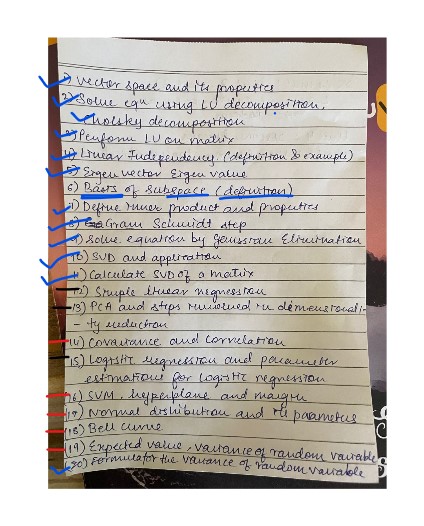 1) Vector space and its properties
2) Solve eqn using LU decomposition,
Cholsky decomposition
3) Perform LU on matrix
4) Linear Independency (definition & example)
5) Eigen vector Eigen value
6) Basis of subspace (definition)
7) Define inner product and properties
8) Gram Schmidt step
9) Solve equation by Gaussian Elimination
10) SVD and application
11) Calculate SVD of a matrix
12) Simple linear regression
13) PCA and steps involved in dimensionali-
-ty reduction
14) Covariance and correlation
15) Logistic regression and parameter
estimations for logistic regression
16) SVM, hyperplane and margin
17) Normal distribution and its parameters
18) Bell curve
19) Expected value, variance of random variable
20) Formula for the variance of random variable